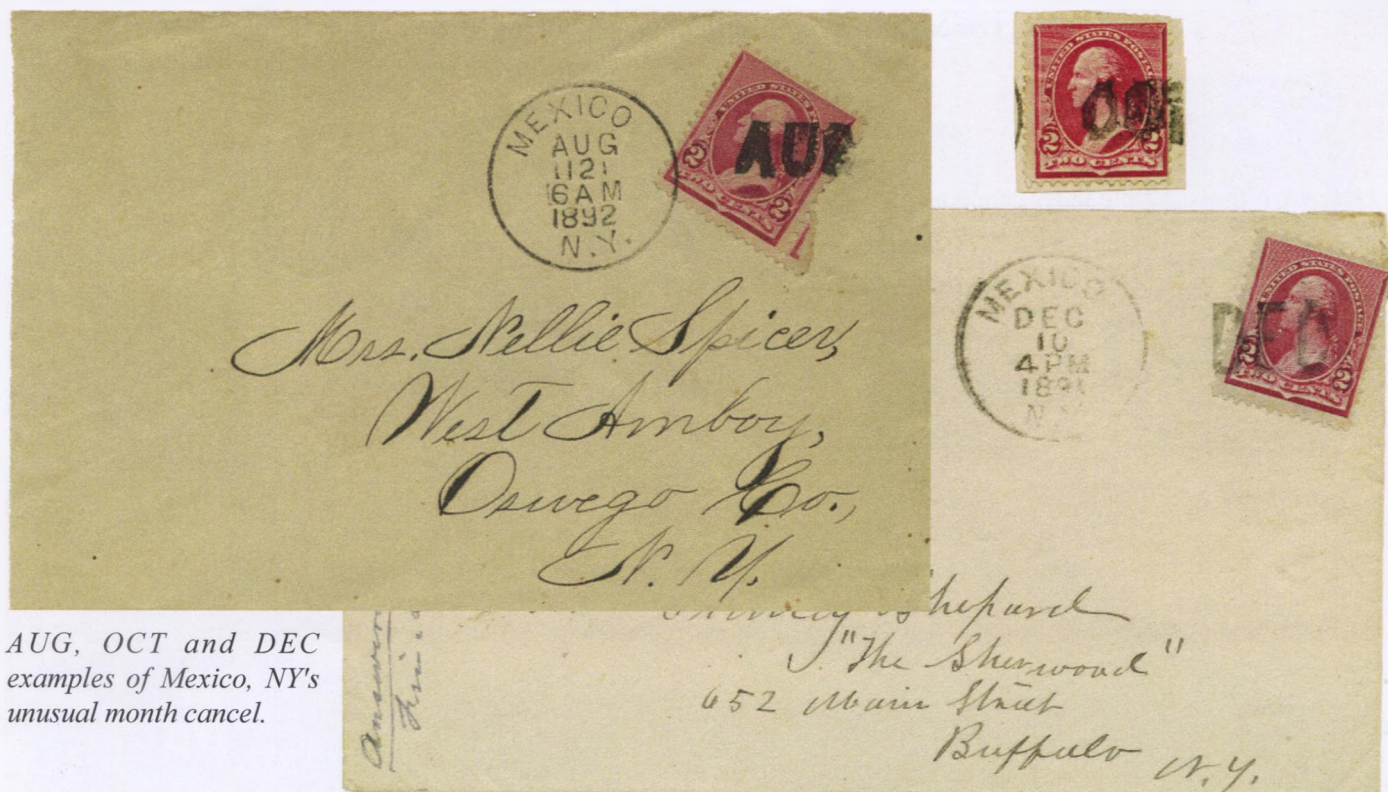 MEXICO
AUG
1121
6AM
1892
N.Y.
UNITED STATES POSTAGE
2 2
TWO CENTS
AUG
Mrs. Nellie Spicer,
West Amboy,
Oswego Co.,
N. Y.
UNITED STATES POSTAGE
2 2
TWO CENTS
OCT
MEXICO
DEC
10
4PM
189
N.Y.
UNITED STATES POSTAGE
2 2
TWO CENTS
DEC
Shepard
"The Sherwood"
652 Main Street
Buffalo N.Y.
AUG, OCT and DEC
examples of Mexico, NY's
unusual month cancel.